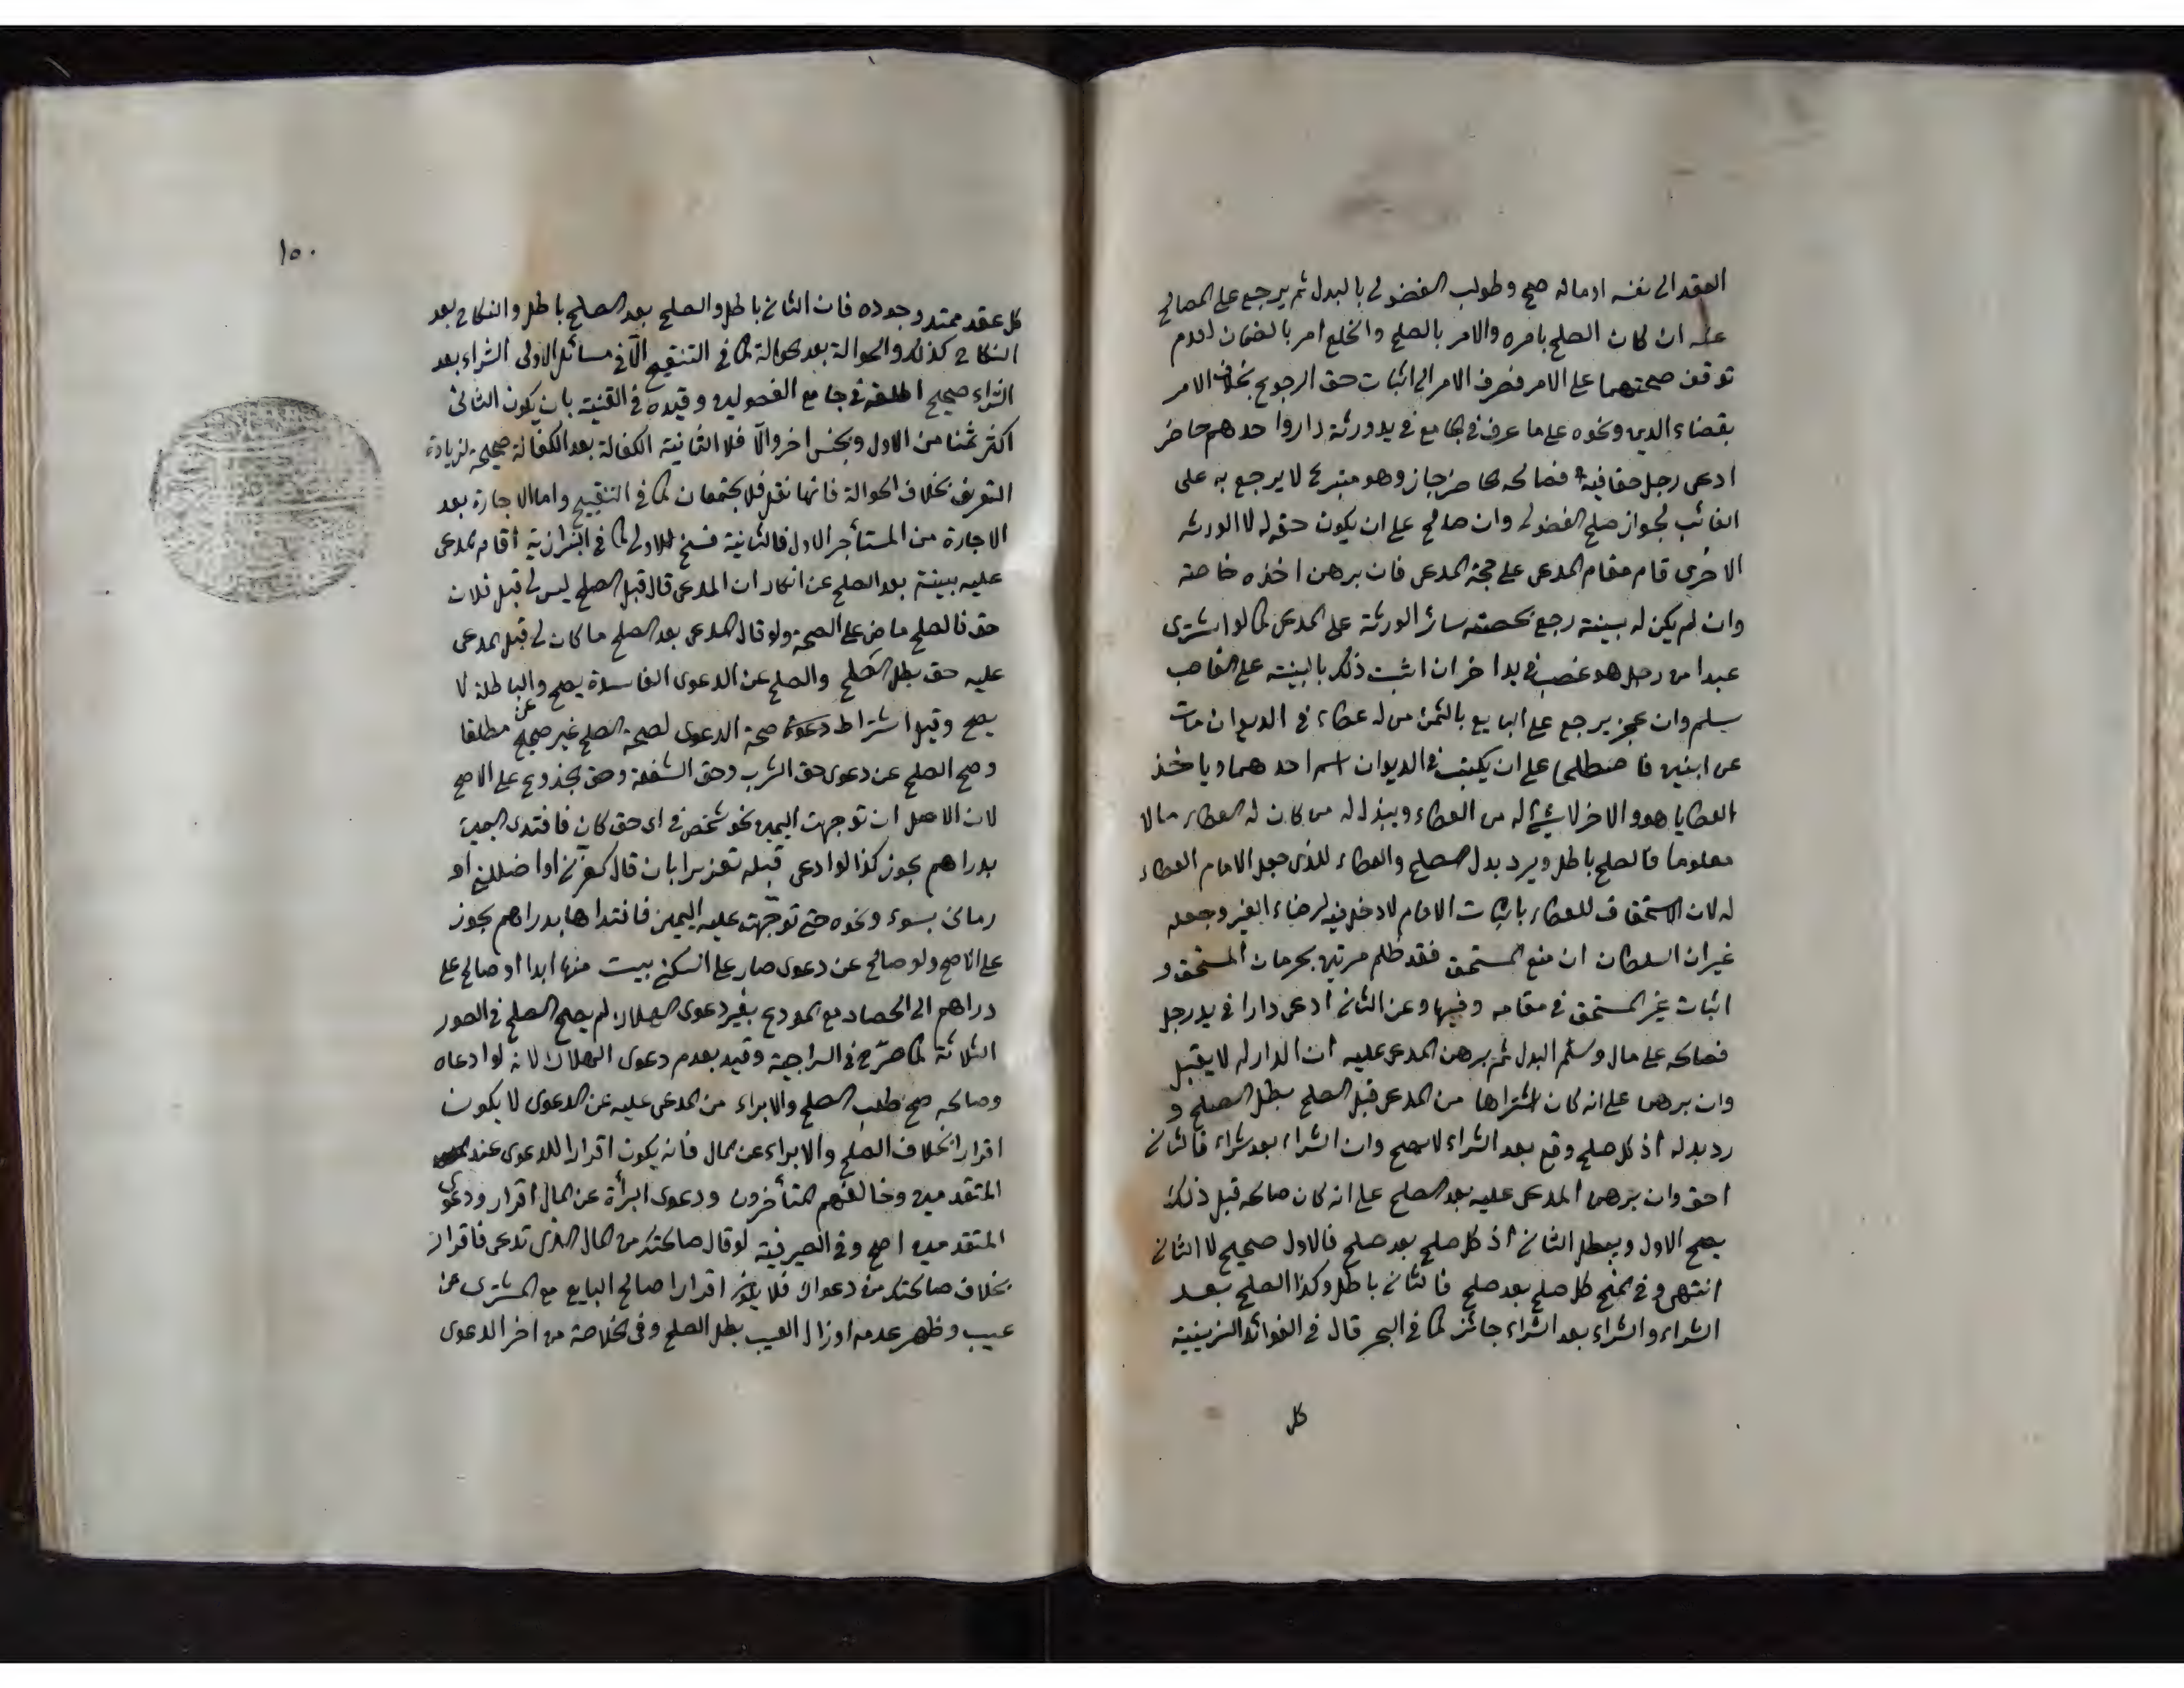 العقد الى نفسه او ماله صح وطولب الفضولى بالبدل ثم يرجع على المصالح
عنه ان كان الصلح بامره والامر بالصلح والخلع امر بالضمان لعدم
توقف صحتهما على الامر فصرف الامر الى اثبات حق الرجوع بخلاف الامر
بقضاء الدين ونحوه على ما عرف فى الجامع فى يد ورثة دار واحدهم حاضر
ادعى رجل حقا فيه فصالحه الحاضر جاز وهو متبرع لا يرجع به على
الغائب لجواز صلح الفضولى وان صالح على ان يكون حقه له لا الورثه
الاخرى قام مقام المدعى على حجة المدعى فان برهن اخذه خاصة
وان لم يكن له بينة رجع بحصته سائر الورثة على المدعى كما لو اشترى
عبدا من رجل هو غصب فى يد اخر ان اثبت ذلك بالبينة على الغاصب
سيلم وان عجز يرجع على البايع بالثمن من له عطاء فى الديوان مات
عن ابنين فاصطلحا على ان يكتب فى الديوان اسم احدهما وياخذ
العطايا هو والاخر لا شئ له من العطاء ويبذل له من كان له العطاء مالا
معلوما فالصلح باطل ويرد بدل الصلح والعطاء للذى جعل الامام العطاء
له لان الاستحقاق للعطاء باثبات الامام لا دخل فيه لرضاء الغير وجعله
غير ان السلطان ان منع المستحق فقد ظلم مرتين بحرمان المستحق و
اثبات غير المستحق فى مقامه وفيها وعن الثانى ادعى دارا فى يد رجل
فصالحه على مال وسلم البدل ثم برهن المدعى عليه ان الدار له لا يقبل
وان برهن على انه كان اشتراها من المدعى قبل الصلح بطل الصلح و
رد بدله اذ كل صلح وقع بعد الشراء لا يصح وان الشراء بعد شراء فالثانى
احق وان برهن المدعى عليه بعد الصلح على انه كان صالحه قبل ذلك
يصح الاول ويبطل الثانى اذ كل صلح بعد صلح فالاول صحيح لا الثانى
انتهى وفى المنح كل صلح بعد صلح فالثانى باطل وكذا الصلح بعد
الشراء والشراء بعد الشراء جائز كما فى البحر قال فى الفوائد الزينية
كل
١٥٠
كل عقد ممتد وجوده فان الثانى باطل والصلح بعد الصلح باطل والنكاح بعد
النكاح كذلك والحوالة بعد الحوالة كما فى التنقيح الا فى مسائل الاولى الشراء بعد
الشراء صحيح اطلقه فى جامع الفصولين وقيده فى القنية بان يكون الثانى
اكثر ثمنا من الاول وبجنس اخر والا فلا الثانية الكفالة بعد الكفالة صحيحة لزيادة
التوثق بخلاف الحوالة فانها نقل فلا يجتمعان كما فى التنقيح واما الاجارة بعد
الاجارة من المستأجر الاول فالثانية فسخ للاولى كما فى البزازية اقام المدعى
عليه بينة بعد الصلح عن انكار ان المدعى قال قبل الصلح ليس لى قبل فلان
حق فالصلح ماض على الصحة ولو قال المدعى بعد الصلح ما كان لى قبل المدعى
عليه حق بطل الصلح والصلح عن الدعوى الفاسدة يصح وعن الباطلة لا
يصح وقيل اشتراط دعوة صحة الدعوى لصحة الصلح غير صحيح مطلقا
وصح الصلح عن دعوى حق الشرب وحق الشفعة وحق الجذوع على الاصح
لان الاصل ان توجهت اليمين نحو شخص فى اى حق كان فافتدى اليمين
بدراهم يجوز كذا لو ادعى قبله تعزيرا بان قال كفرنى او اضللنى او
رمانى بسوء ونحوه حتى توجهت عليه اليمين فافتداها بدراهم يجوز
على الاصح ولو صالح عن دعوى صار على السكنى بيت منها ابدا او صالح على
دراهم الى الحصاد مع المودع بغير دعوى الهلاك لم يصح الصلح فى الصور
الثلاثة كما صرح فى السراجية وقيد بعدم دعوى الهلاك لانه لو ادعاه
وصالحه صح طلب الصلح والابراء من المدعى عليه عن الدعوى لا يكون
اقرارا بخلاف الصلح والابراء عن المال فانه يكون اقرارا للدعوى عند
المتقدمين وخالفهم المتأخرون ودعوى البرأة عن المال اقرار ودعوى
المتقدمين اصح وفى الصيرفية لو قال صالحتك من المال الذى تدعى فاقرار
بخلاف صالحتك من دعواك فلا يكون اقرارا صالح البايع مع المشترى عن
عيب وظهر عدمه او زال العيب بطل الصلح وفى الخلاصة من اخر الدعوى